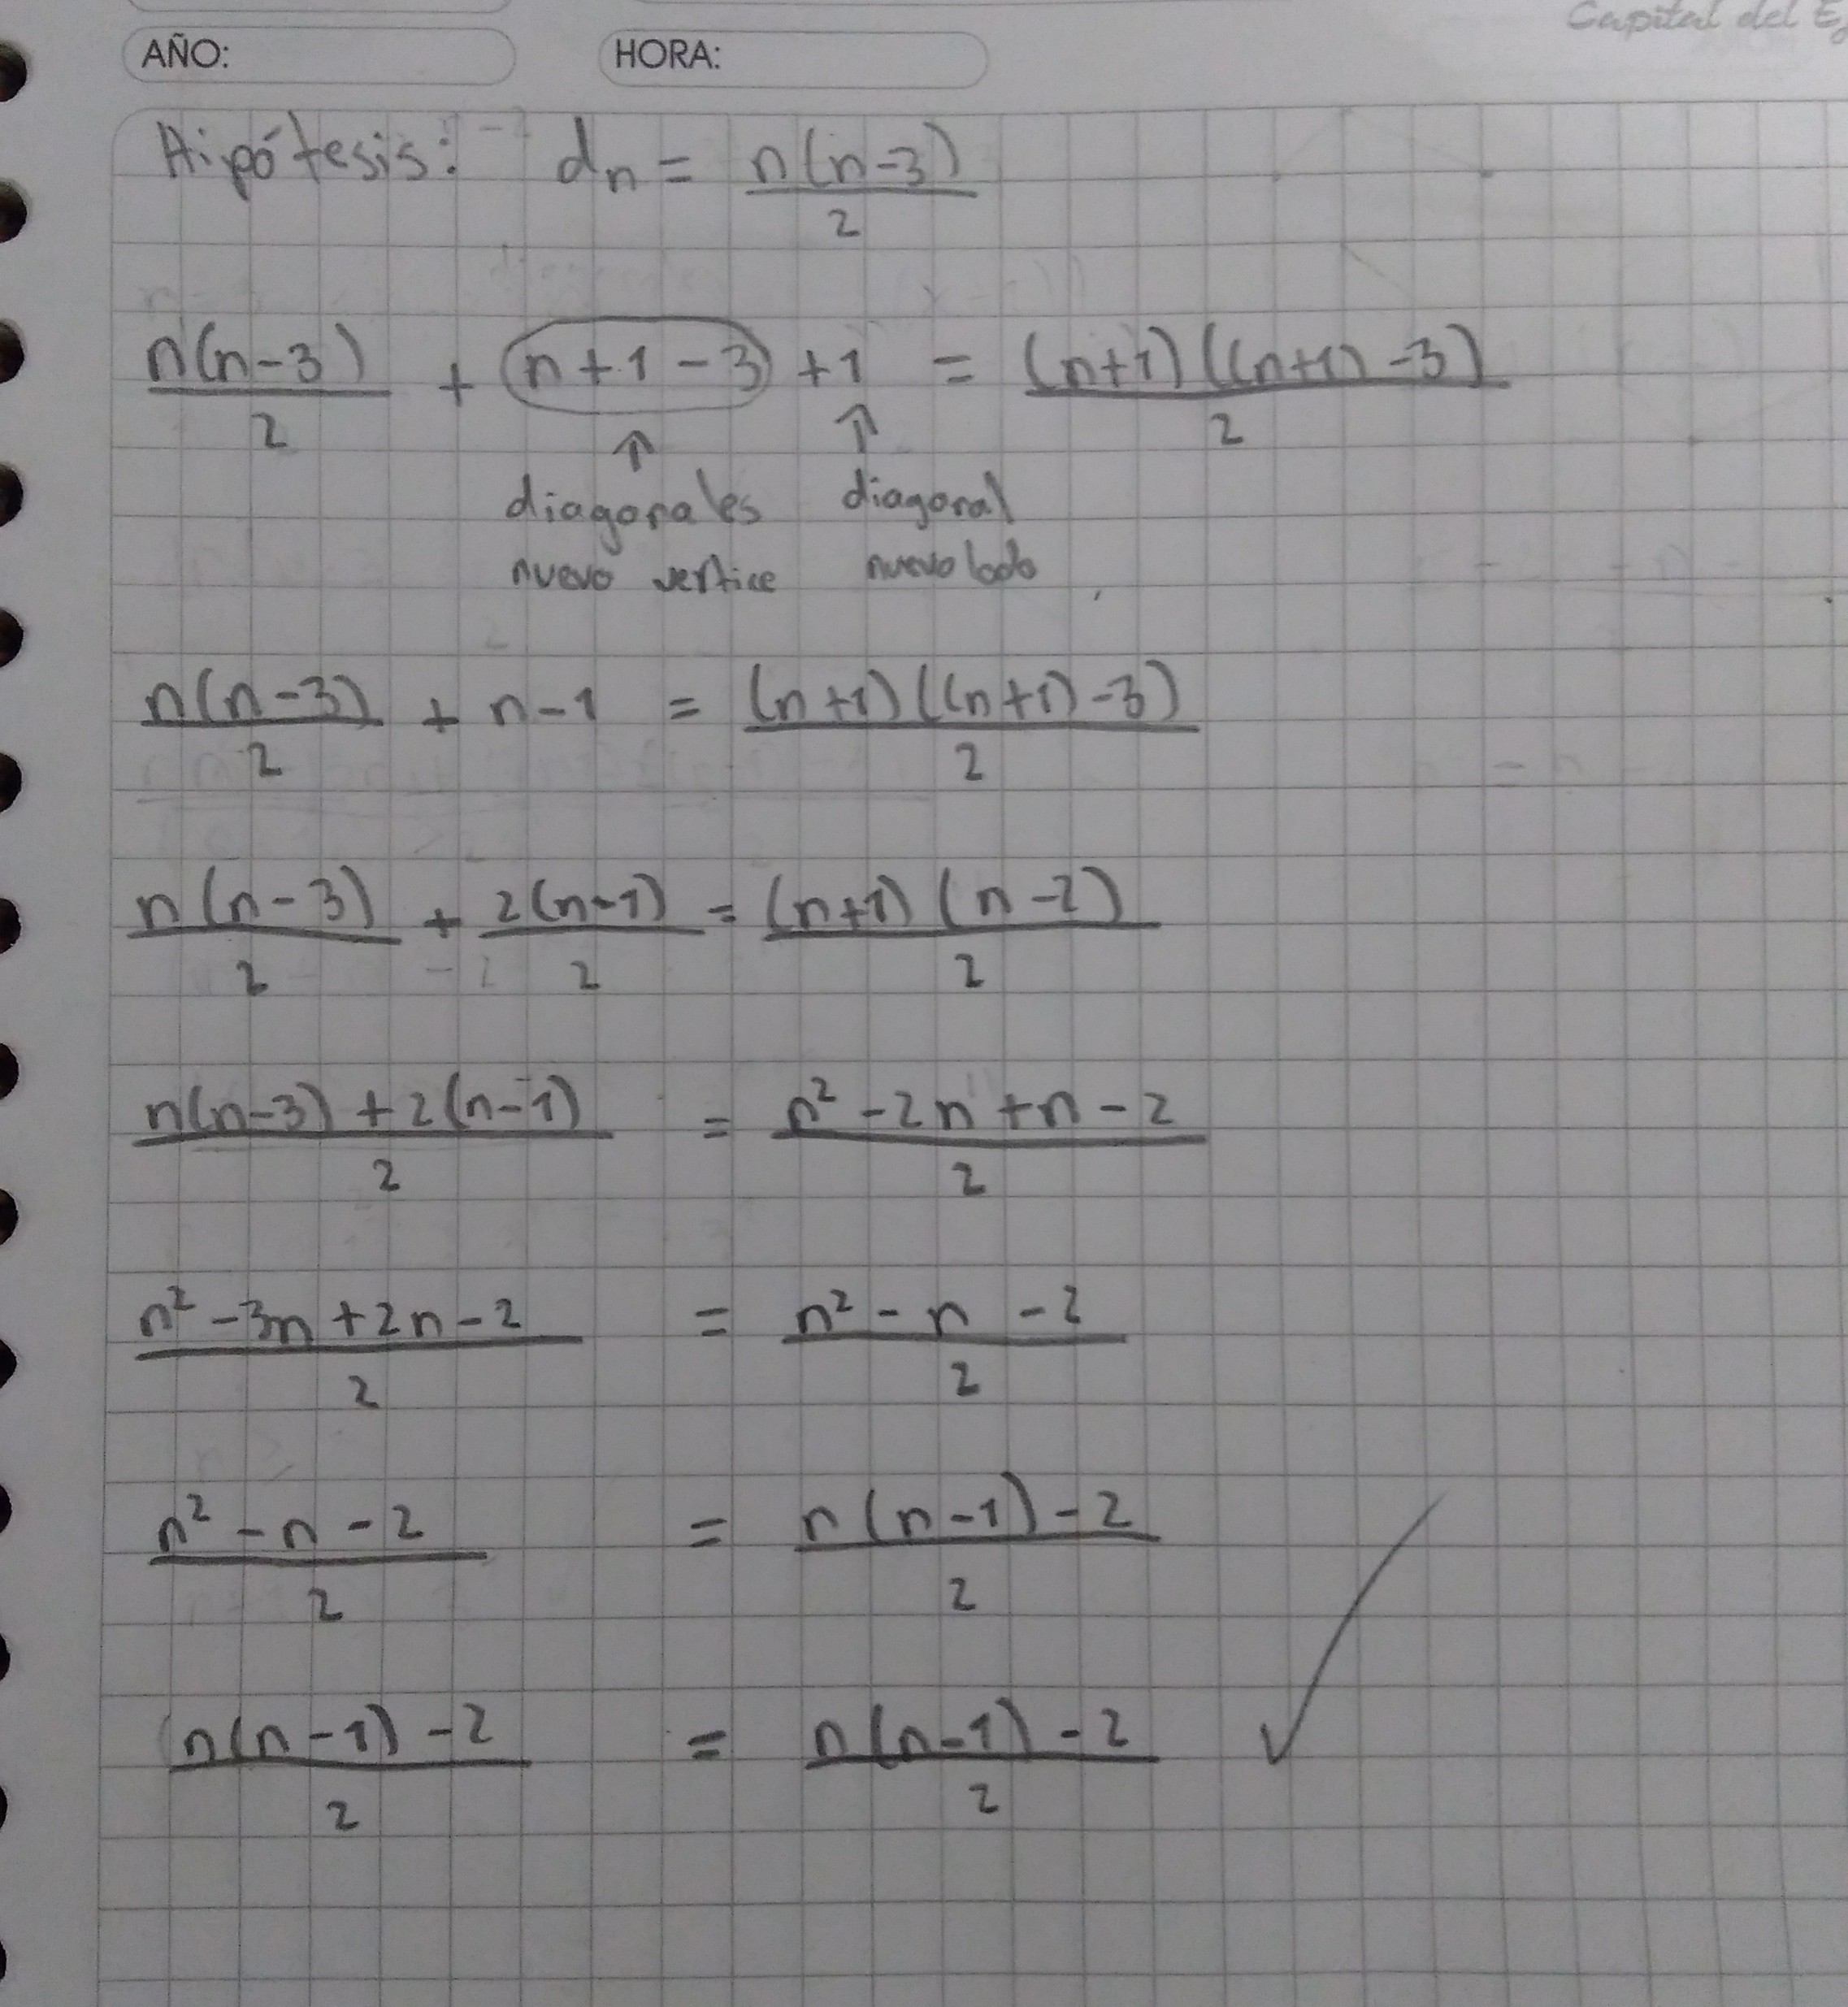 Capital del
AÑO: HORA:
Hipótesis: dn = n(n-3)/2
n(n-3)/2 + (n+1-3) +1 = (n+1)((n+1)-3)/2
↑ ↑
diagonales diagonal
nuevo vertice nuevo lado
n(n-3)/2 + n-1 = (n+1)((n+1)-3)/2
n(n-3)/2 + 2(n-1)/2 = (n+1)(n-2)/2
n(n-3)+2(n-1)/2 = n²-2n+n-2/2
n²-3n+2n-2/2 = n²-n-2/2
n²-n-2/2 = n(n-1)-2/2
n(n-1)-2/2 = n(n-1)-2/2 ✓